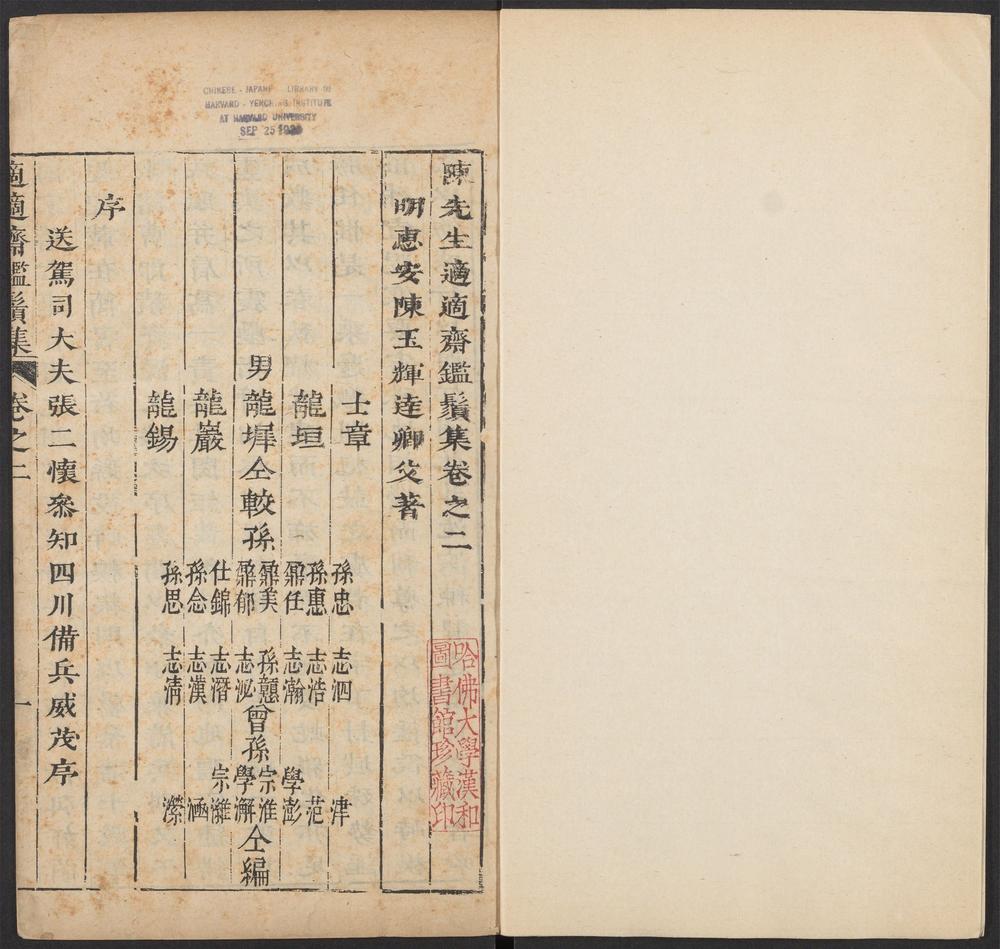 陳先生適適齋鑑鬚集卷之二
明惠安陳玉輝逵卿父著
男
士章
龍垣
龍墀
龍巖
龍錫
仝較
孫
孫忠 志泗
孫惠 志浩
鼐任 志瀚
鼐美 孫戇
鼐郁 志泌
仕錦 志潛
孫念 志漢
孫思 志清
曾孫
津
范
學澎
宗淮
學澥
宗濰
涵
瀠
仝編
序
送駕司大夫張二懷叅知四川備兵威茂序
適適齋鑑鬚集
卷之二
一
哈佛大學漢和
圖書館珍藏印
CHINESE - JAPANE LIBRARY OF
HARVARD - YENCHING INSTITUTE
AT HARVARD UNIVERSITY
SEP 25